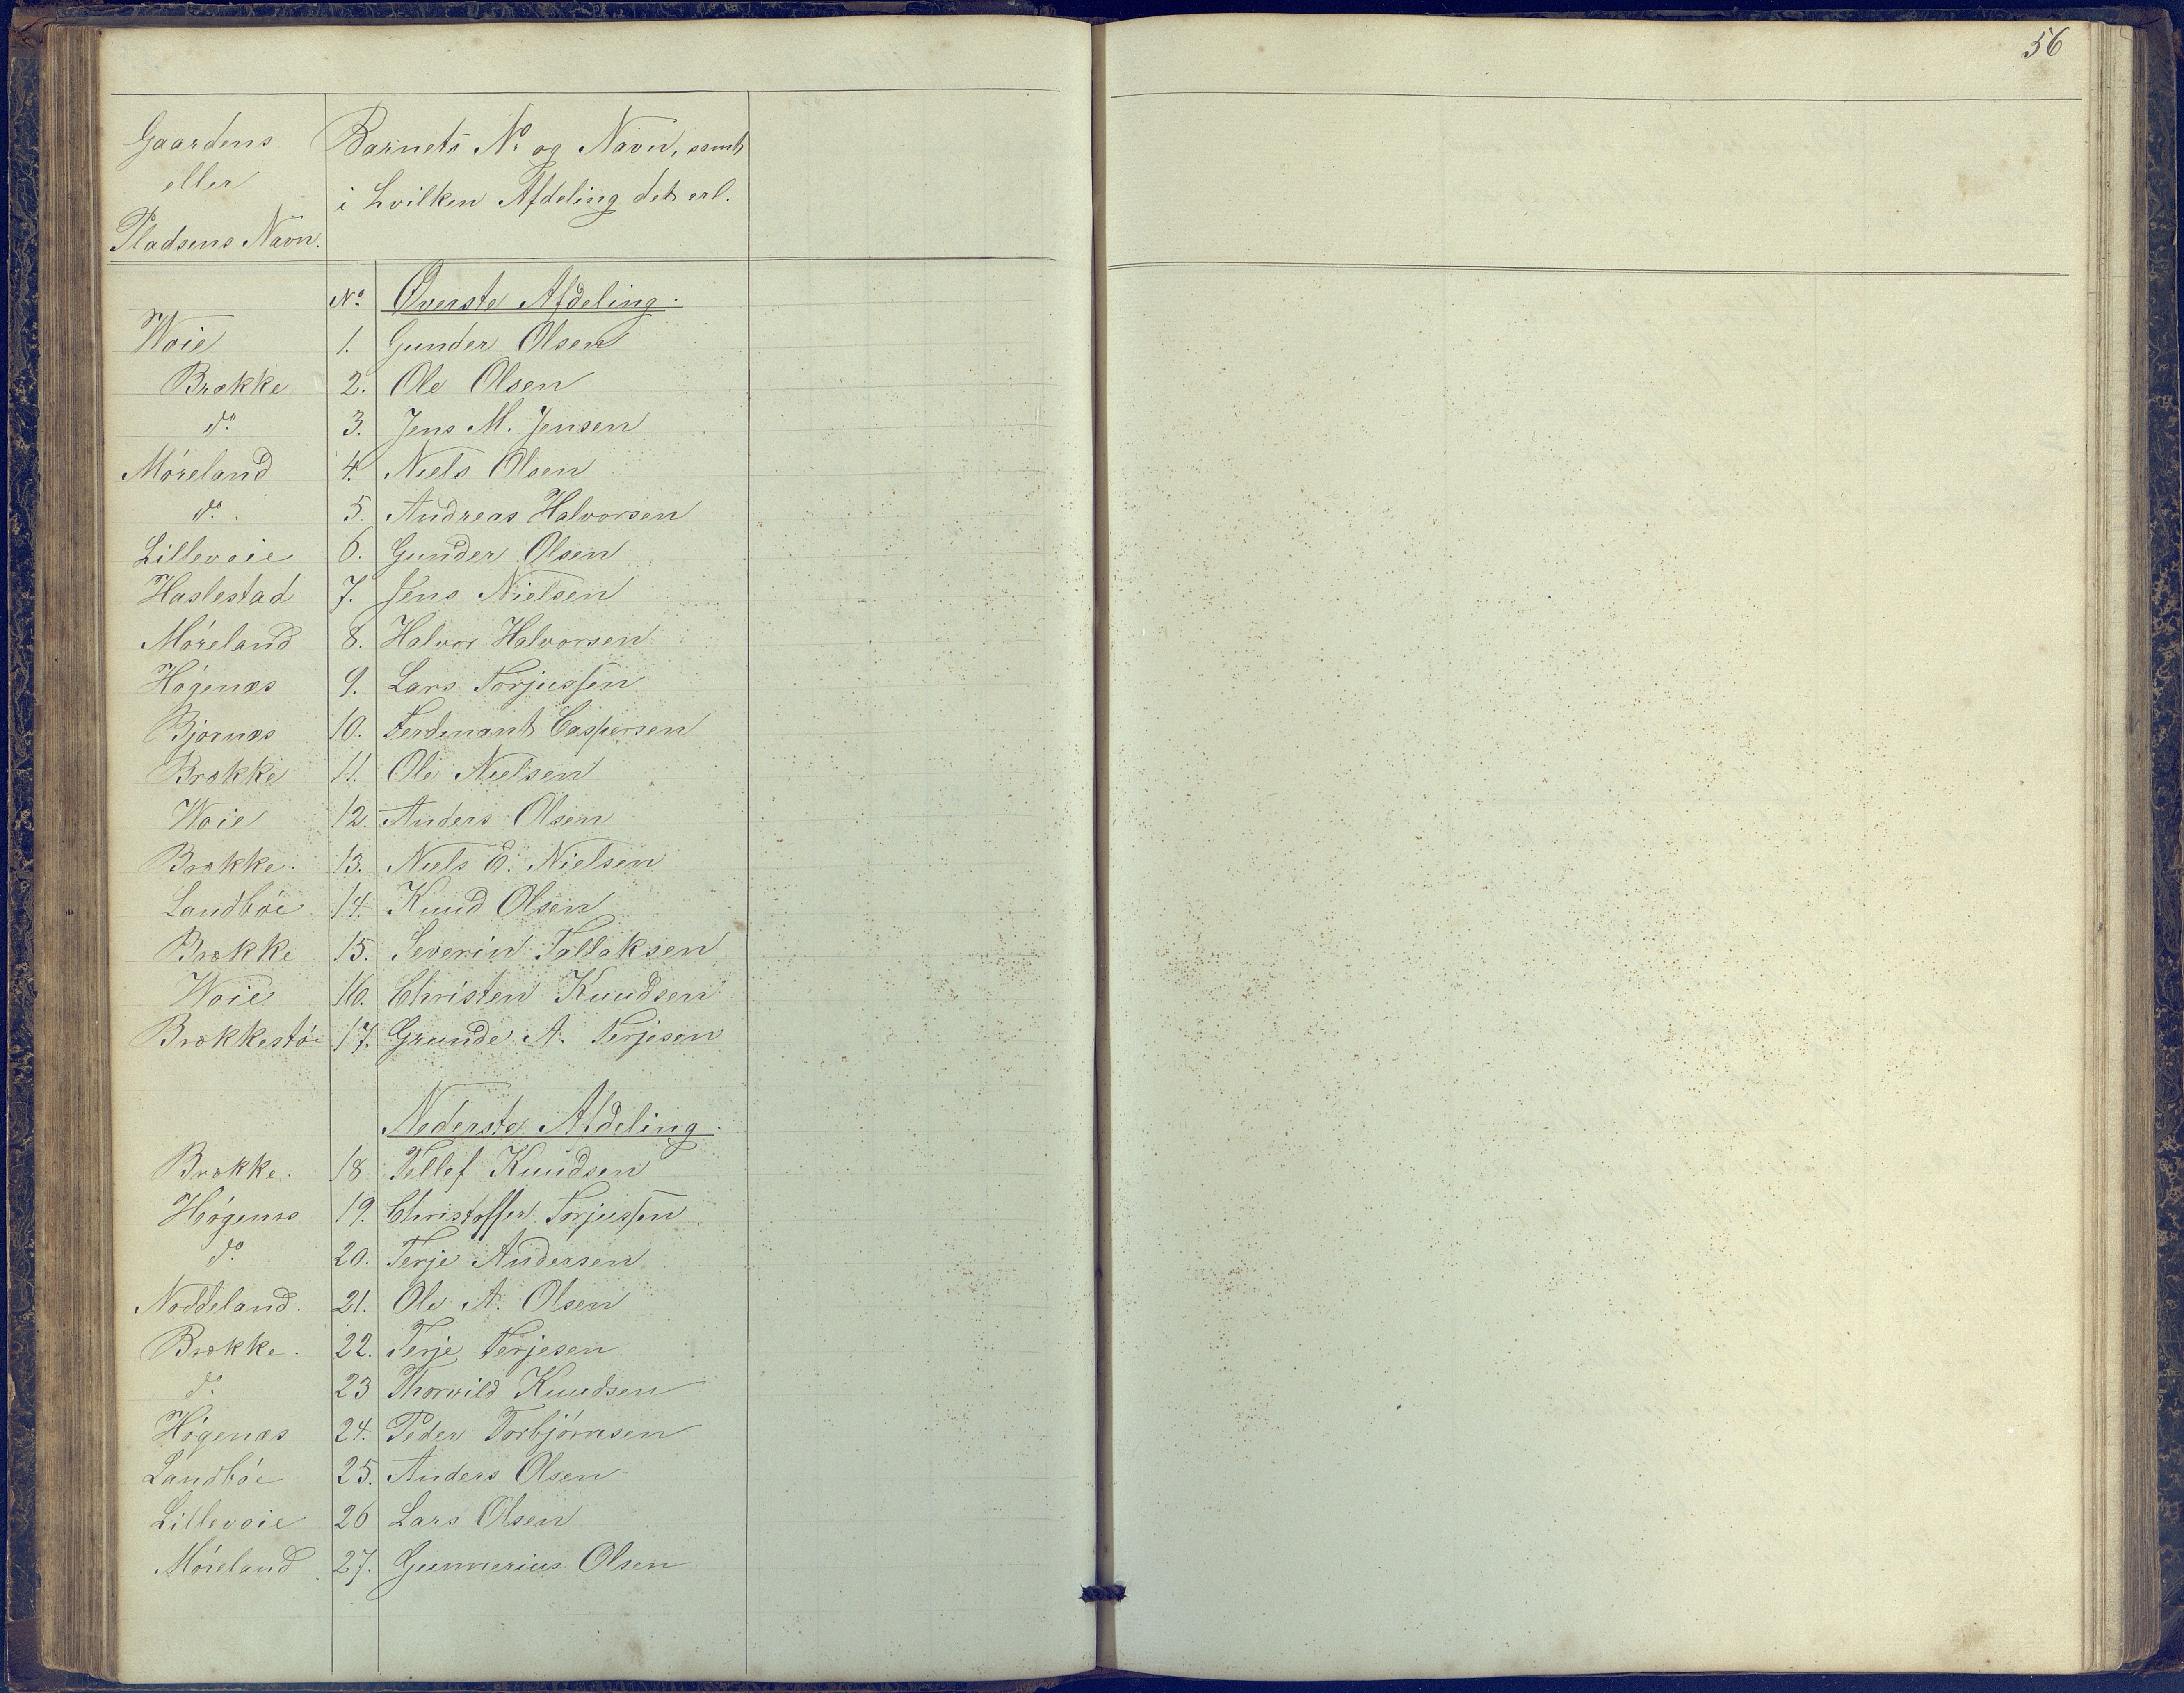 56
Gaardens
eller
Pladsens Navn.
Barnets No og Navn, samt
i hvilken Afdeling det erl.
No Øverste Afdeling.
Woie 1. Gunder Olsen
Brække 2. Ole Olsen
do 3. Jens M. Jensen
Móreland 4. Niels Olsen
do 5. Andreas Halvorsen
Lillevoie 6. Gunder Olsen
Haslestad 7. Jens Nielsen
Móreland 8. Halvor Halvorsen
Hógenæs 9. Lars Torjussen
Bjornæs 10. Ferdinant Caspersen
Brække 11. Ole Nielsen
Woie 12. Anders Olsen
Brække. 13. Niels E. Nielsen
Landbóe 14. Knud Olsen
Brække 15. Severin Tallaksen
Woie 16. Christen Knudsen
Brækkestó 17. Grunde A. Terjesen
Nederste Afdeling.
Brække. 18 Tellef Knudsen
Hógenæs 19. Christoffer Torjussen
do 20. Terje Andersen
Noddeland. 21. Ole A. Olsen
Brække. 22. Terje Terjesen
do 23 Thorvild Knudsen
Hógenæs 24. Peder Torbjórnsen
Landbóe 25. Anders Olsen
Lillevoie 26 Lars Olsen
Móreland 27. Gunnerius Olsen